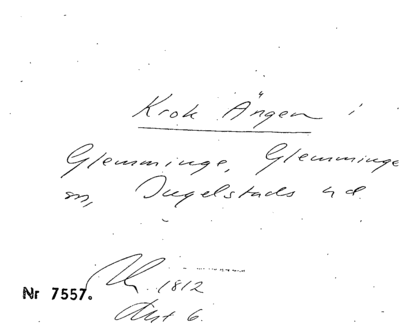 Krok Ängen i
Glemminge, Glemminge
sn, Ingelstads hd.
1812
Nr 7557.
Akt 6.